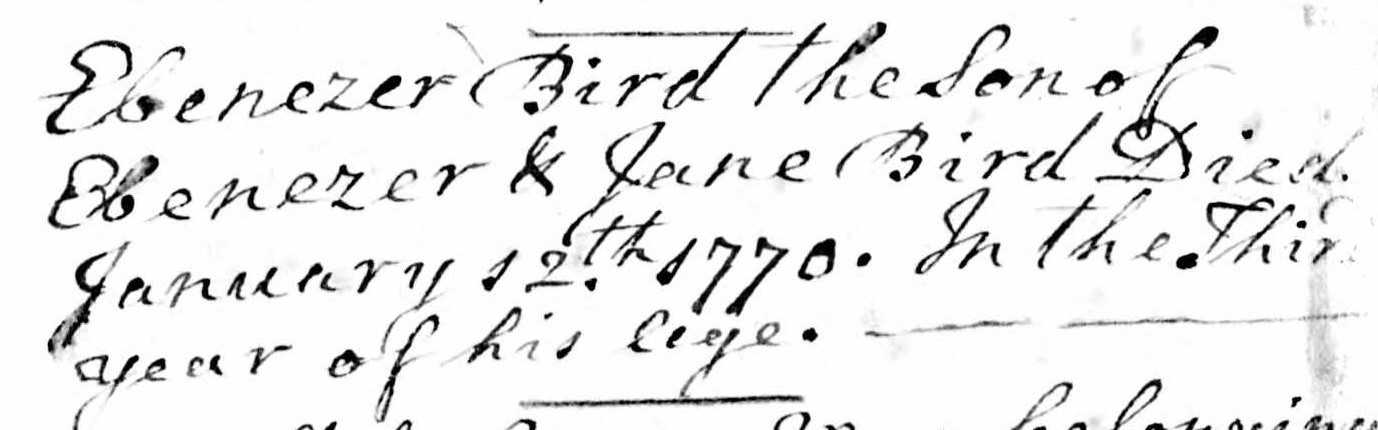 Ebenezer Bird the Son of
Ebenezer & Jane Bird Died
January 12.th 1770. In the Thir
year of his age.